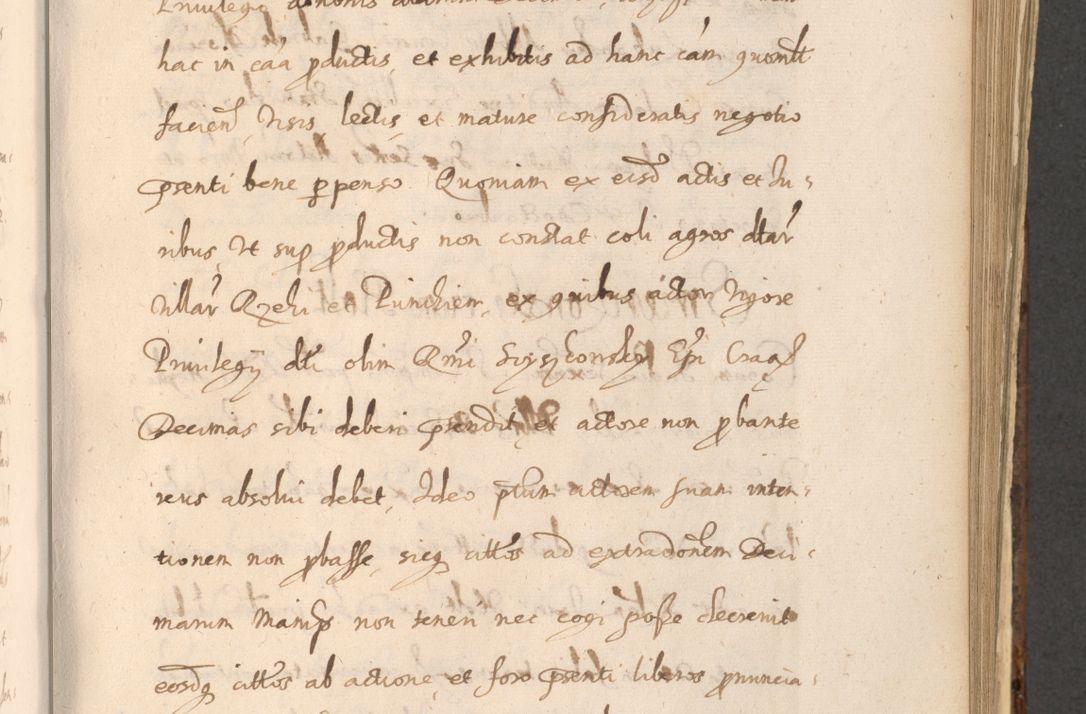 hac in cáá productis, et exhibitis ad hanc cám quomlt
faciend, visis, lectis, et mature consideratis negotio
psenti bene perpenso. Quoniam ex eisd actis et Iu-
ribus vt sup productis non constat coli agros dtar
villar Rzehi et Punchien, ex quibus actor vigore
Privilegij dti olim Rmi Epi Crac
Decimas sibi deberi prtendit, et actore non probante
reus absolui debet, Ideo ptum actorem suam inten-
tionem non probasse, sicq cittos ad extradonem Deci-
marum Manip non teneri nec cogi posse decrevit
eosdq cittos ab actione, et foro psenti liberos pronuncia-